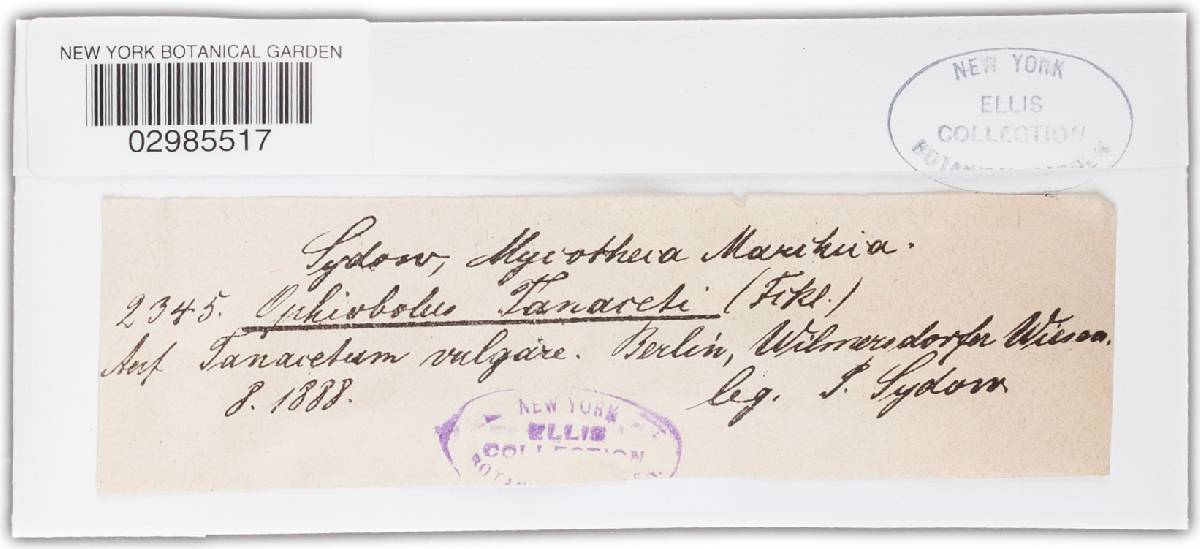 NEW YORK BOTANICAL GARDEN
02985517
NEW YORK
ELLIS
COLLECTION
Sydow, Mycotheca Marchica.
2345. Ophiobolus Tanaceti (Fckl.)
Auf Tanacetum vulgare. Berlin, Wilmersdorfer Wiesen.
8. 1888. leg. P. Sydow
NEW YORK
ELLIS
COLLECTION